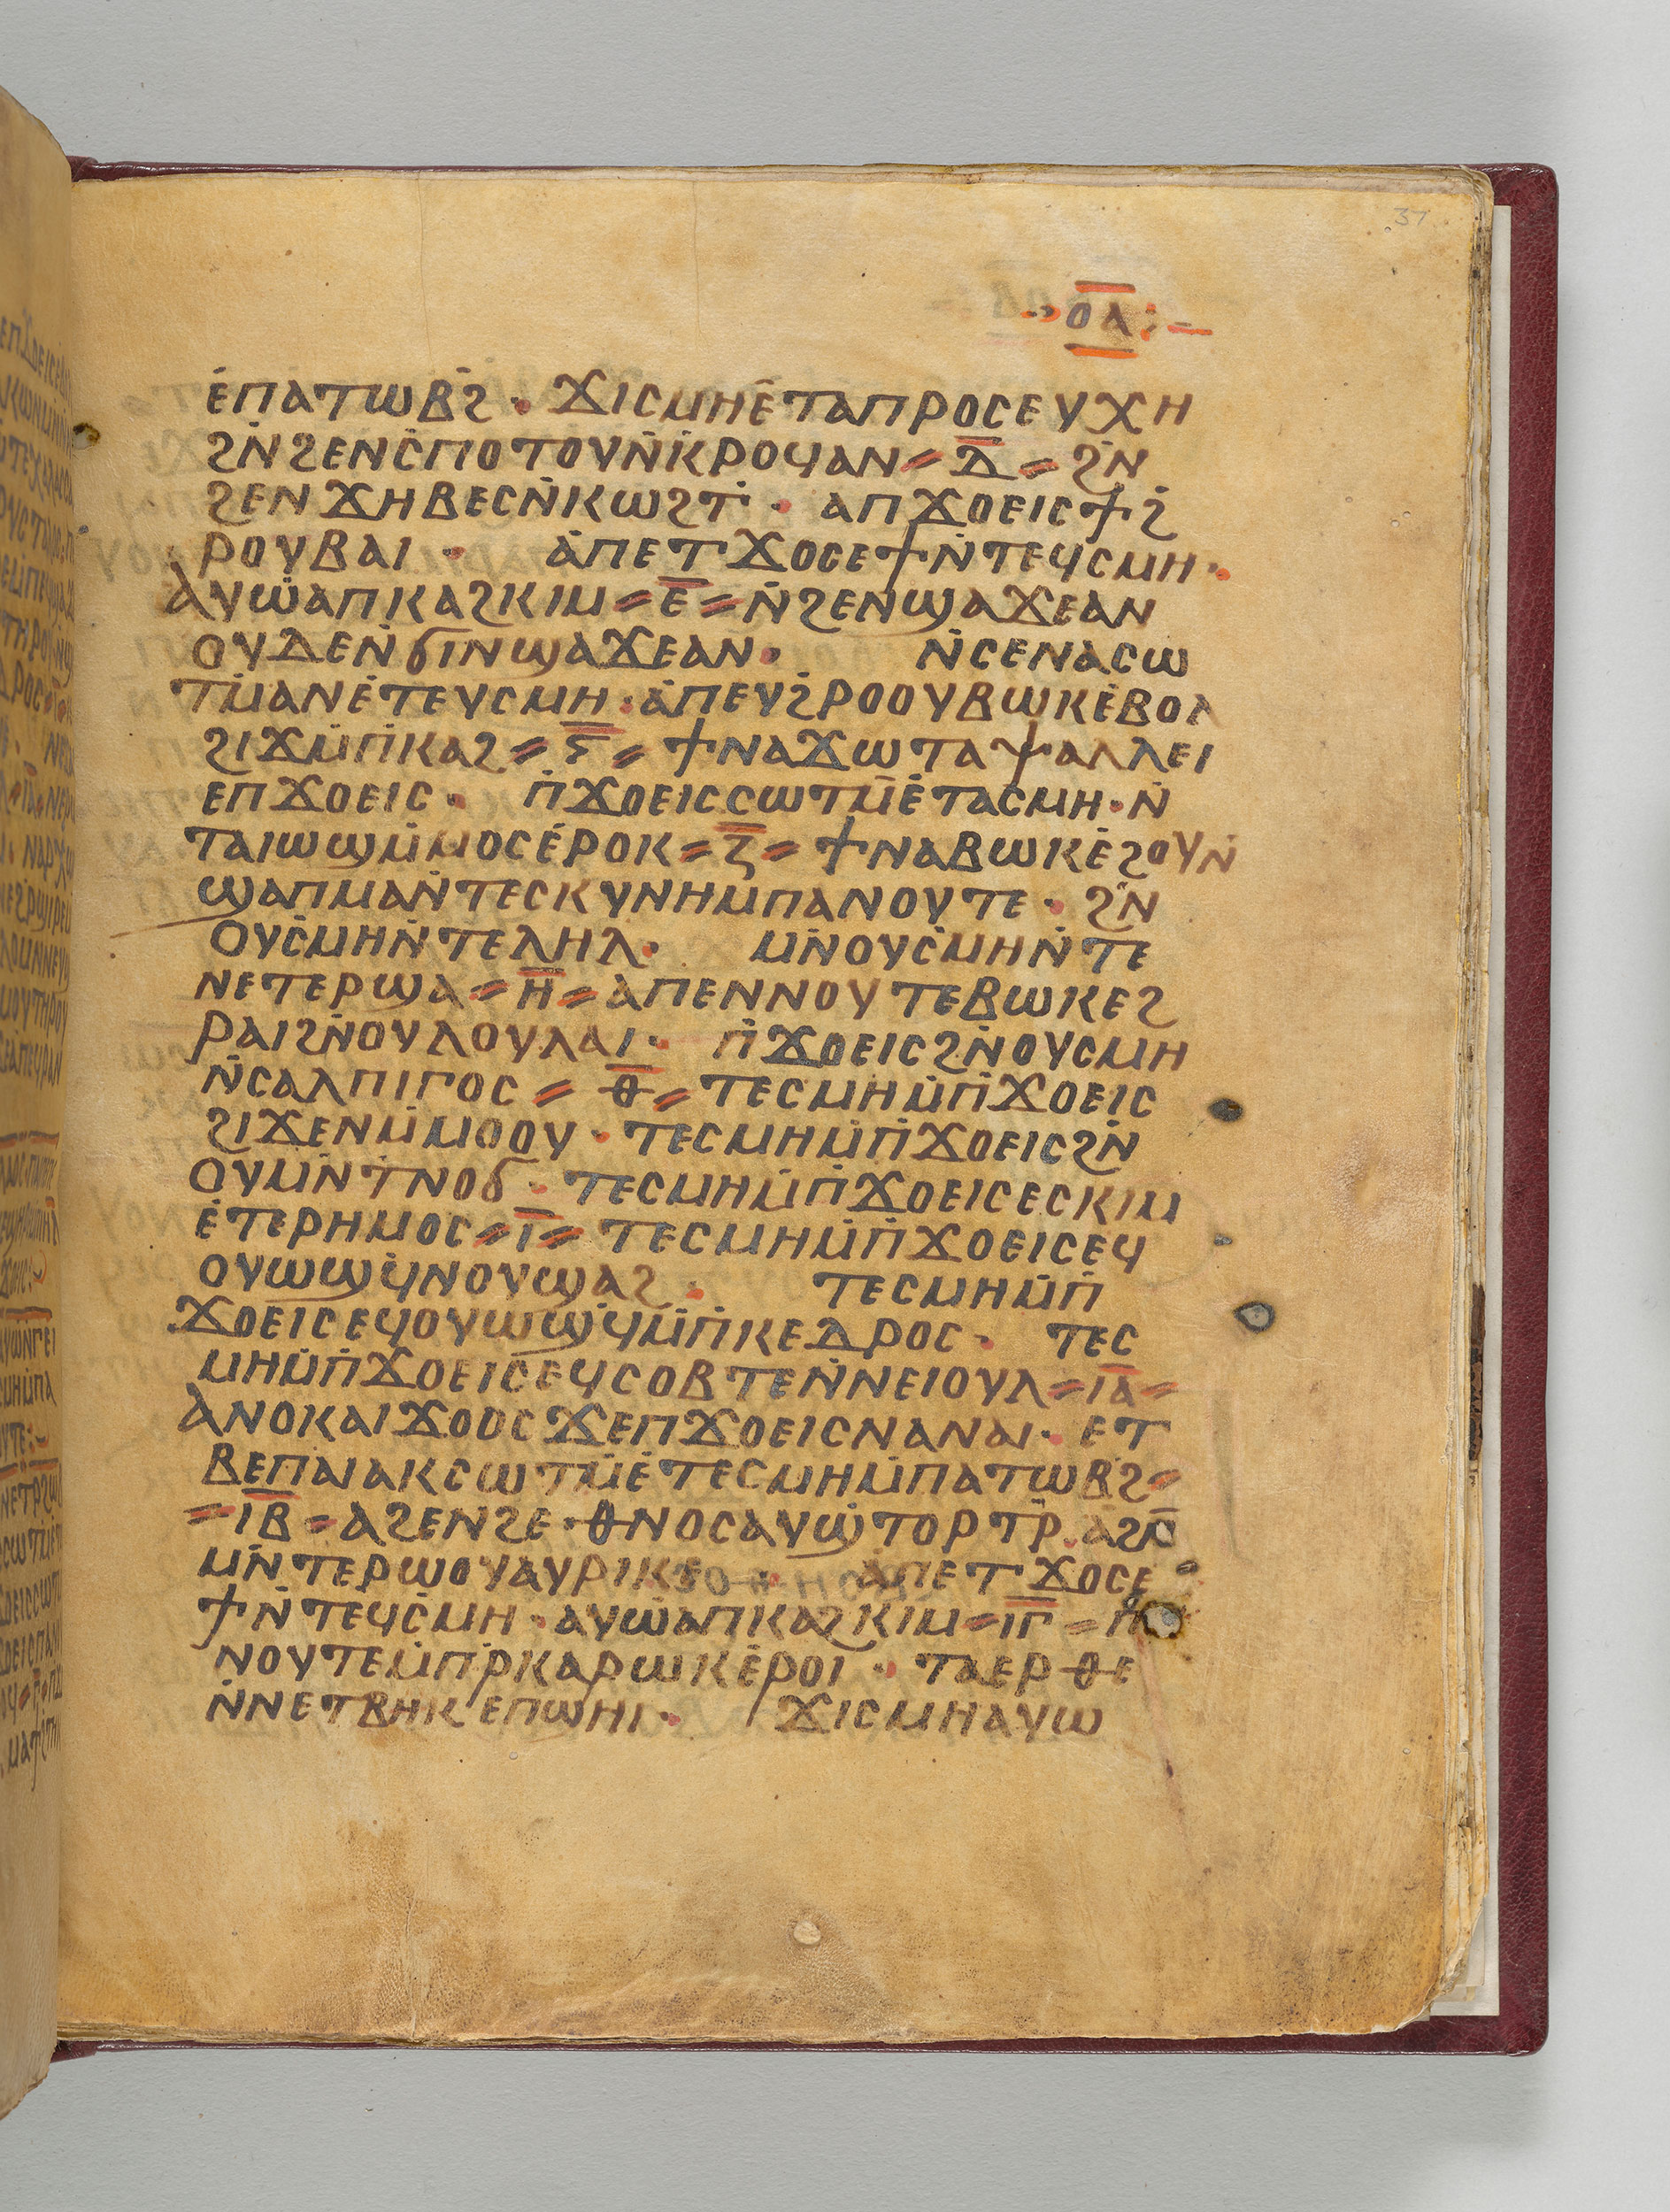 37
ⲟⲁ
ⲉ̇ⲡⲁⲧⲱⲃϩ̇ · ϫⲓⲥⲙⲏⲉ̇ⲧⲁⲡⲣⲟⲥⲉⲩⲭⲏ
ϩⲛ̇ϩⲉⲛⲥ̇ⲡⲟⲧⲟⲩⲛ̇ⲕ̇ⲣⲟϥⲁⲛ = ⲇ̅ = ϩⲛ̇
ϩⲉⲛϫⲏⲃⲉⲥⲛ̇ⲕⲱϩⲧ̇ · ⲁⲡϫⲟⲉⲓⲥϯϩ̇
ⲣⲟⲩⲃⲃⲁⲓ · ⲁ̇ⲡⲉⲧϫⲟⲥⲉϯⲛ̇ⲧⲉϥⲥⲙⲏ ·
ⲁⲩⲱ̇ⲁⲡⲕⲁϩⲕⲓⲙ = ⲉ̅ = ⲛ̇ϩⲉⲛϣⲁϫⲉⲁⲛ
ⲟⲩⲇⲉⲛ̇ϭⲓⲛϣⲁϫⲉⲁⲛ · ⲛ̇ⲥⲉⲛⲁⲥⲱ
ⲧⲙ̇ⲁⲛⲉ̇ⲧⲉⲩⲥⲙⲏ · ⲁ̇ⲡⲉⲩϩ̇ⲣⲟⲟⲩⲃⲱⲕⲉ̇ⲃⲟⲗ
ϩⲓϫⲙ̇ⲡ̇ⲕⲁϩ = ⲋ̅ = ϯⲛⲁϫⲱⲧⲁⲯⲁⲗⲗⲉⲓ
ⲉⲡϫⲟⲉⲓⲥ · ⲡ̇ϫⲟⲉⲓⲥⲥⲱⲧⲙ̇ⲉ̇ⲧⲁⲥⲙⲏ · ⲛ̇
ⲧⲁⲓⲱϣⲙ̇ⲙⲟⲥⲉ̇ⲣⲟⲕ = ⲍ̅ = ϯⲛⲁⲃⲱⲕⲉ̇ϩⲟⲩⲛ̇
ϣⲁⲡⲙⲁⲛ̇ⲧⲉⲥⲕⲩⲛⲏⲙⲡⲁⲛⲟⲩⲧⲉ · ϩⲛ̇
ⲟⲩⲥ̇ⲙⲏⲛ̇ⲧⲉⲗⲏⲗ · ⲙⲛ̇ⲟⲩⲥ̇ⲙⲏⲛ̇ⲧⲉ
ⲛⲉⲧⲉⲣϣⲁ = ⲏ̅ = ⲁⲡⲉⲛⲛⲟⲩⲧⲉⲃⲱⲕⲉϩ
ⲣⲁⲓϩⲛ̇ⲟⲩⲗⲟⲩⲗⲁⲓ · ⲡ̇ϫⲟⲉⲓⲥϩⲛ̇ⲟⲩⲥⲙⲏ
ⲛ̇ⲥⲁⲗⲡⲓⲅⲟⲥ = ⲑ̅ = ⲧⲉⲥⲙⲏⲙ̇ⲡ̇ϫⲟⲉⲓⲥ
ϩⲓϫⲉⲛⲙ̇ⲙⲟⲟⲩ · ⲧⲉⲥⲙⲏⲙ̇ⲡ̇ϫⲟⲉⲓⲥϩⲛ̇
ⲟⲩⲙⲛ̇ⲧ̇ⲛⲟϭ · ⲧⲉⲥⲙⲏⲙ̇ⲡ̇ϫⲟⲉⲓⲥⲉⲥⲕⲓⲙ
ⲉ̇ⲧⲉⲣⲏⲙⲟⲥ = ⲓ̅ = ⲧⲉⲥⲙⲏⲙ̇ⲡ̇ϫⲟⲉⲓⲥⲉϥ
ⲟⲩⲱϣϥ̇ⲛⲟⲩϣⲁϩ · ⲧⲉⲥⲙⲏⲙ̇ⲡ̇
ϫⲟⲉⲓⲥⲉϥⲟⲩⲱϣϥ̇ⲙ̇ⲡ̇ⲕⲉⲇⲣⲟⲥ · ⲧⲉⲥ
ⲙⲏⲙ̇ⲡ̇ϫⲟⲉⲓⲥⲉϥⲥⲟⲃⲧⲉⲛ̇ⲛⲉⲓⲟⲩⲗ = ⲓ̅ⲁ̅ =
ⲁⲛⲟⲕⲁⲓϫⲟⲟⲥϫⲉⲡϫⲟⲉⲓⲥⲛⲁⲛⲁⲓ · ⲉⲧ
ⲃⲉⲡⲁⲓⲁⲕⲥⲱⲧⲙ̇ⲉ̇ⲧⲉⲥⲙⲏⲙ̇ⲡⲁⲧⲱⲃϩ̇ =
= ⲓ̅ⲃ̅ = ⲁϩⲉⲛϩⲉ · ⲑⲛⲟⲥⲁⲩϣ̇ⲧⲟⲣⲧⲣ̇ ·
ⲙⲛ̇ⲧⲉⲣⲱⲟⲩⲁⲩⲣⲓⲕⲉ · ⲁⲡⲉⲧϫⲟⲥⲉ
ϯⲛ̇ⲧⲉϥⲥ̇ⲙⲏ · ⲁⲩⲱ̇ⲁⲡⲕⲁϩⲕⲓⲙ = ⲓ̅ⲅ̅ = ⲡ̇
ⲛⲟⲩⲧⲉⲙ̇ⲡ̇ⲣ̇ⲕⲁⲣⲱⲕⲉ̇ⲣⲟⲓ · ⲧⲁⲉⲣⲑⲉ
ⲛ̇ⲛⲉⲧⲃⲏⲕⲉⲡϣⲏⲓ · ϫⲓⲥⲙⲏⲁⲩⲱ